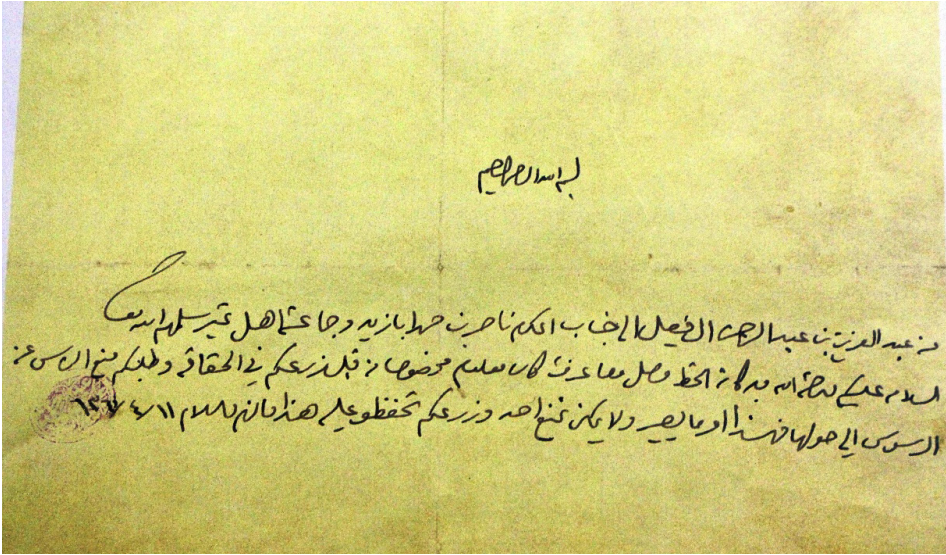 بسم الله الرحمن الرحيم
من عبد العزيز بن عبد الرحمن ال فيصل الى جناب المكرم ناصر بن ابازيد وجماعته اهل سلمهم الله تعالى
السلام عليكم ورحمة الله وبركاته الخط وصل وما عرفت كان معلوم مخصوصا من قبل زرعكم في الحقاقه وطلبكم منع الناس عن
الى حولها فهذا امر ما يصير ولا يمكن نمنع احد وزرعكم تحفظو عليه هذا مالزم والسلام ١١/٤/